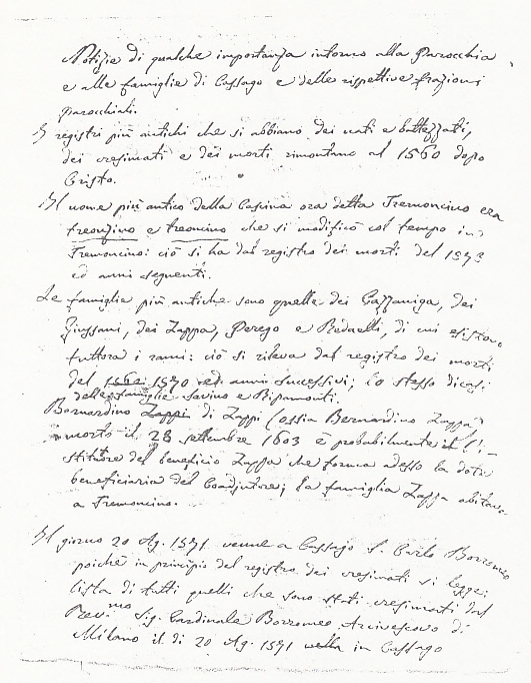 Notizie di qualche importanza intorno alla Parocchia
e alle famiglie di Cassago e delle rispettive frazioni
parocchiali.
I registri più antichi che si abbiano dei nati e battezzati,
dei cresimati e dei morti rimontano al 1560 dopo
Cristo.
Il nome più antico della Cascina ora detta Tremoncino era
treonzino e treoncino che si modificò col tempo in
Tremoncino: ciò si ha dal registro dei morti del 1573
ed anni seguenti.
Le famiglie più antiche sono quelle dei Gazzaniga, dei
Giussani, dei Zappa, Perego e Redaelli, di cui esistono
tuttora i rami: ciò si rileva dal registro dei morti
del 1570 ed anni successivi; lo stesso dicasi
delle famiglie Savino e Ripamonti.
Bernardino Zappi di Zappi (ossia Bernardino Zappa)
morto il 28 settembre 1603 è probabilmente il
stitutore del beneficio Zappa che forma adesso la dote
beneficiaria del Coadjutore; la famiglia Zappa abitava
a Tremoncino.
Il giorno 20 Ag. 1571 venne a Cassago S. Carlo Borromeo
poichè in principio del registro dei cresimati si legge:
lista di tutti quelli che sono stati cresimati dal
Rev.mo Sig. Cardinale Borromeo Arcivescovo di
Milano il dì 20 Ag. 1571 in Cassago